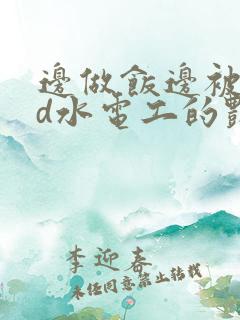 邊做飯邊被
d水電工的
李迎春
未经同意禁止转载